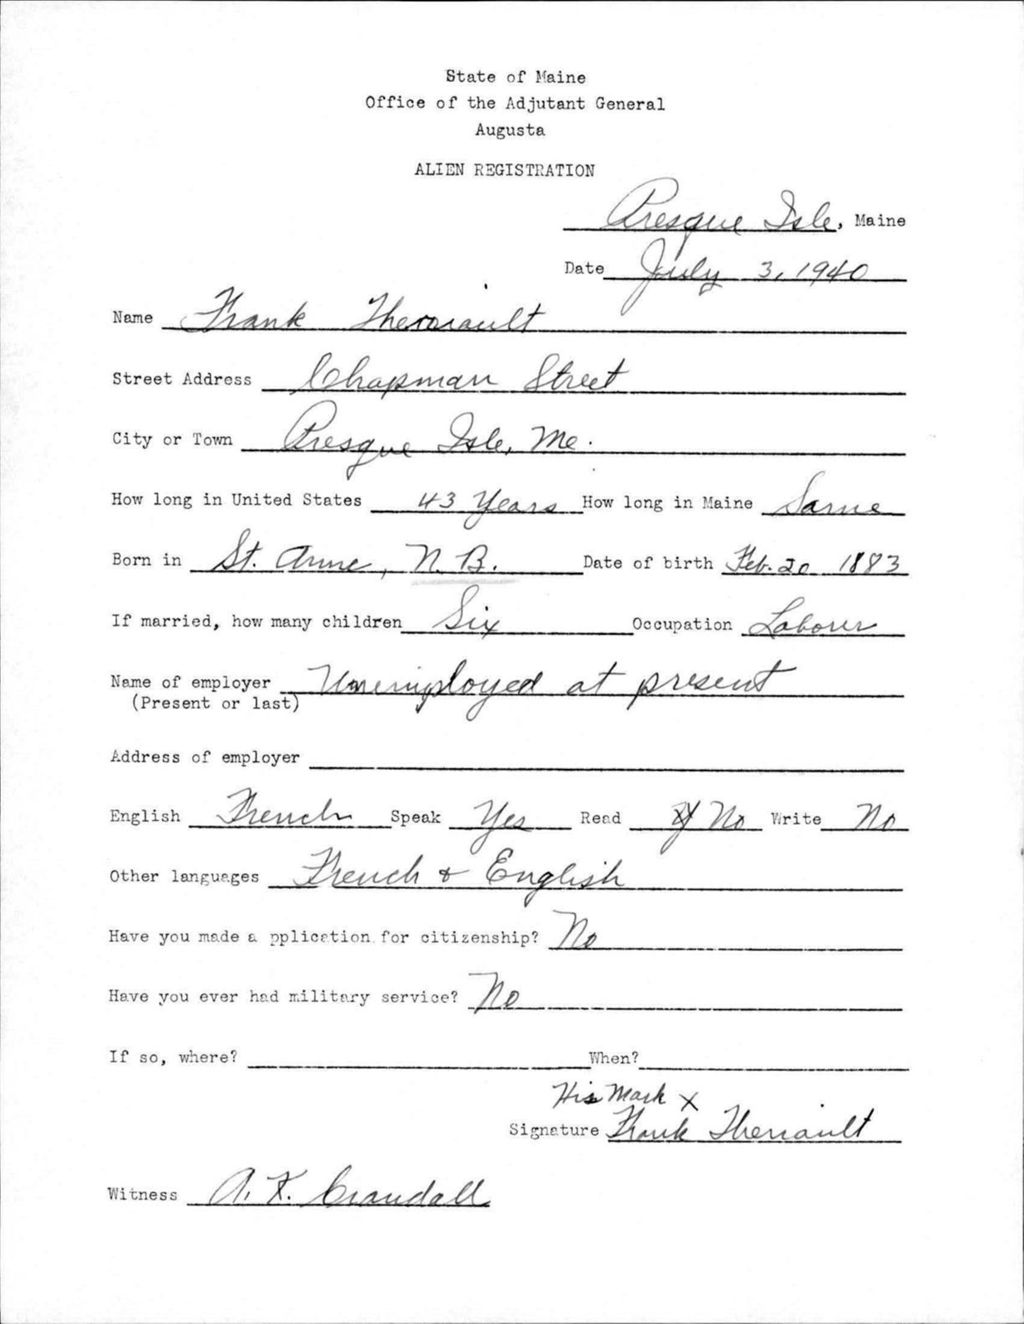 State of Maine
Office of the Adjutant General
Augusta
ALIEN REGISTRATION
Presque Isle, Maine
Date July 3, 1940
Name Frank Theriault
Street Address Chapman Street
City or Town Presque Isle, Me.
How long in United States 43 Years How long in Maine Same
Born in St. Anne, N. B. Date of birth Feb. 20 1883
If married, how many children Six Occupation Laborer
Name of employer Unemployed at present
(Present or last)
Address of employer
English French Speak Yes Read No Write No
Other languages French & English
Have you made a pplication for citizenship? No
Have you ever had military service? No
If so, where? When?
His Mark X
Signature Frank Theriault
Witness A. K. Crandall